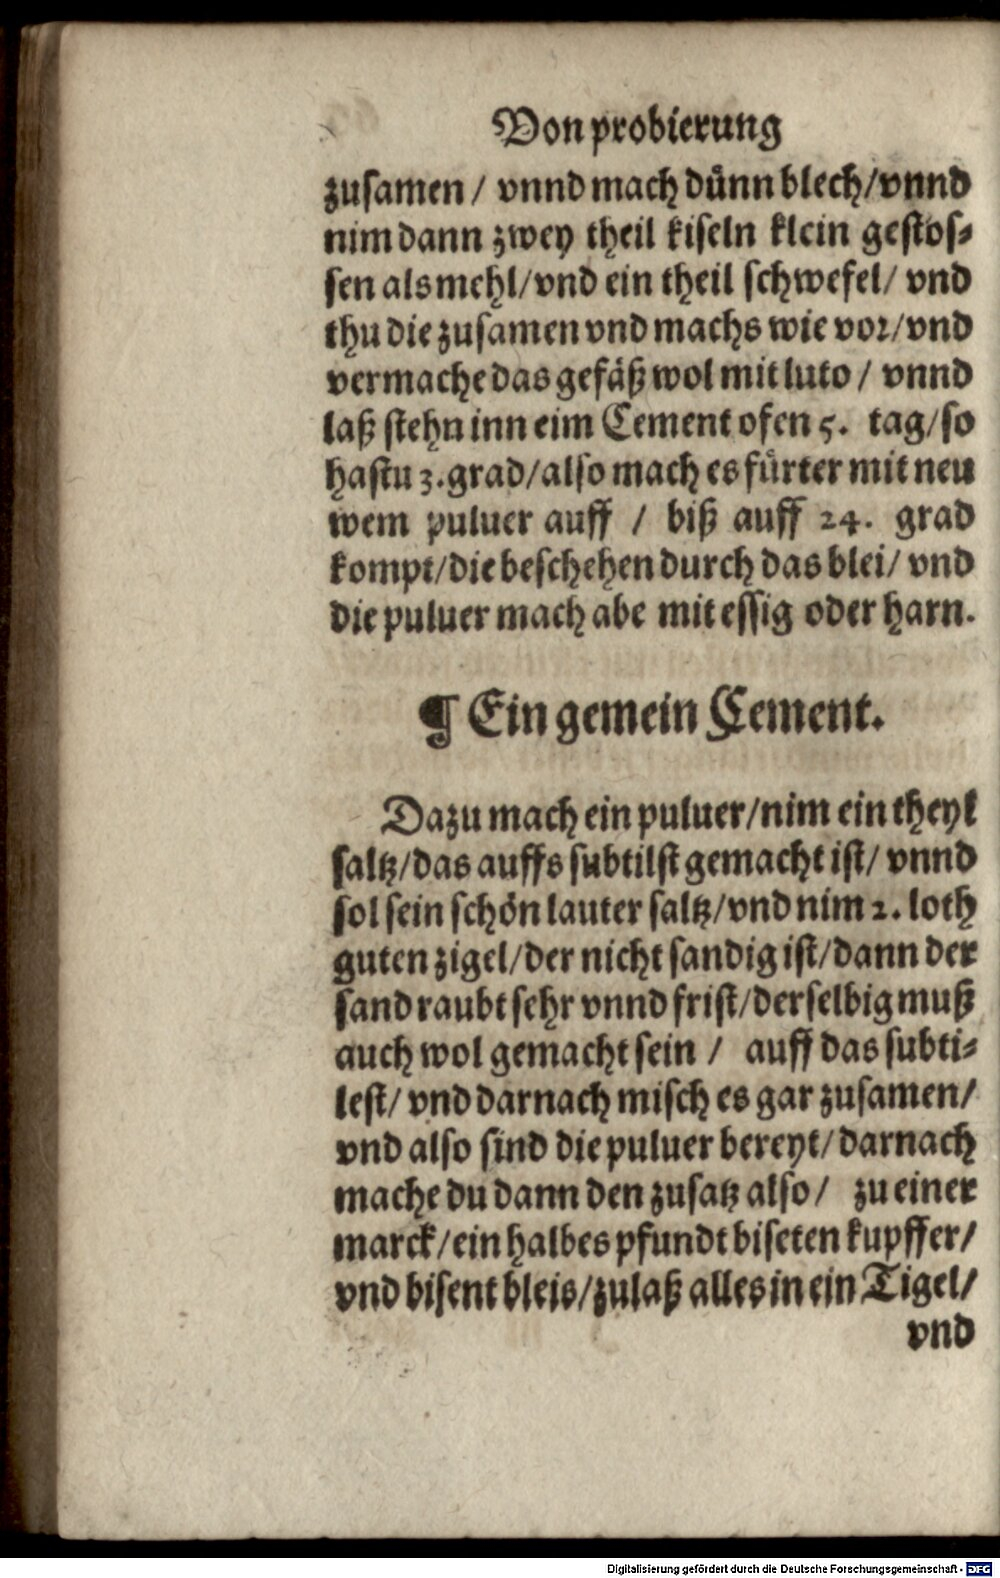 Von probierung
zusamen / vnnd mach dünn blech/vnnd
nim dann zwey theil kiseln klein gestos⸗
sen als mehl/vnd ein theil schwefel/ vnd
thu die zusamen vnd machs wie vor/vnd
vermache das gefäß wol mit luto / vnnd
laß stehn inn eim Cement ofen 5. tag/so
hastu 3.grad/also mach es fürter mit neu
wem puluer auff / biß auff 24. grad
kompt/die beschehen durch das blei/ vnd
die puluer mach abe mit essig oder harn.
¶ Ein gemein Cement.
Dazu mach ein puluer/nim ein theyl
saltz/das auffs subtilst gemacht ist/ vnnd
sol sein schön lauter saltz/vnd nim 2. loth
guten zigel/der nicht sandig ist/dann der
sand raubt sehr vnnd frist/derselbig muß
auch wol gemacht sein / auff das subti⸗
lest/ vnd darnach misch es gar zusamen/
vnd also sind die puluer bereyt/darnach
mache du dann den zusatz also / zu einer
marck/ein halbes pfundt biseten kupffer/
vnd bisent bleis/zulaß alles in ein Tigel/
vnd
Digitalisierung gefördert durch die Deutsche Forschungsgemeinschaft - DFG